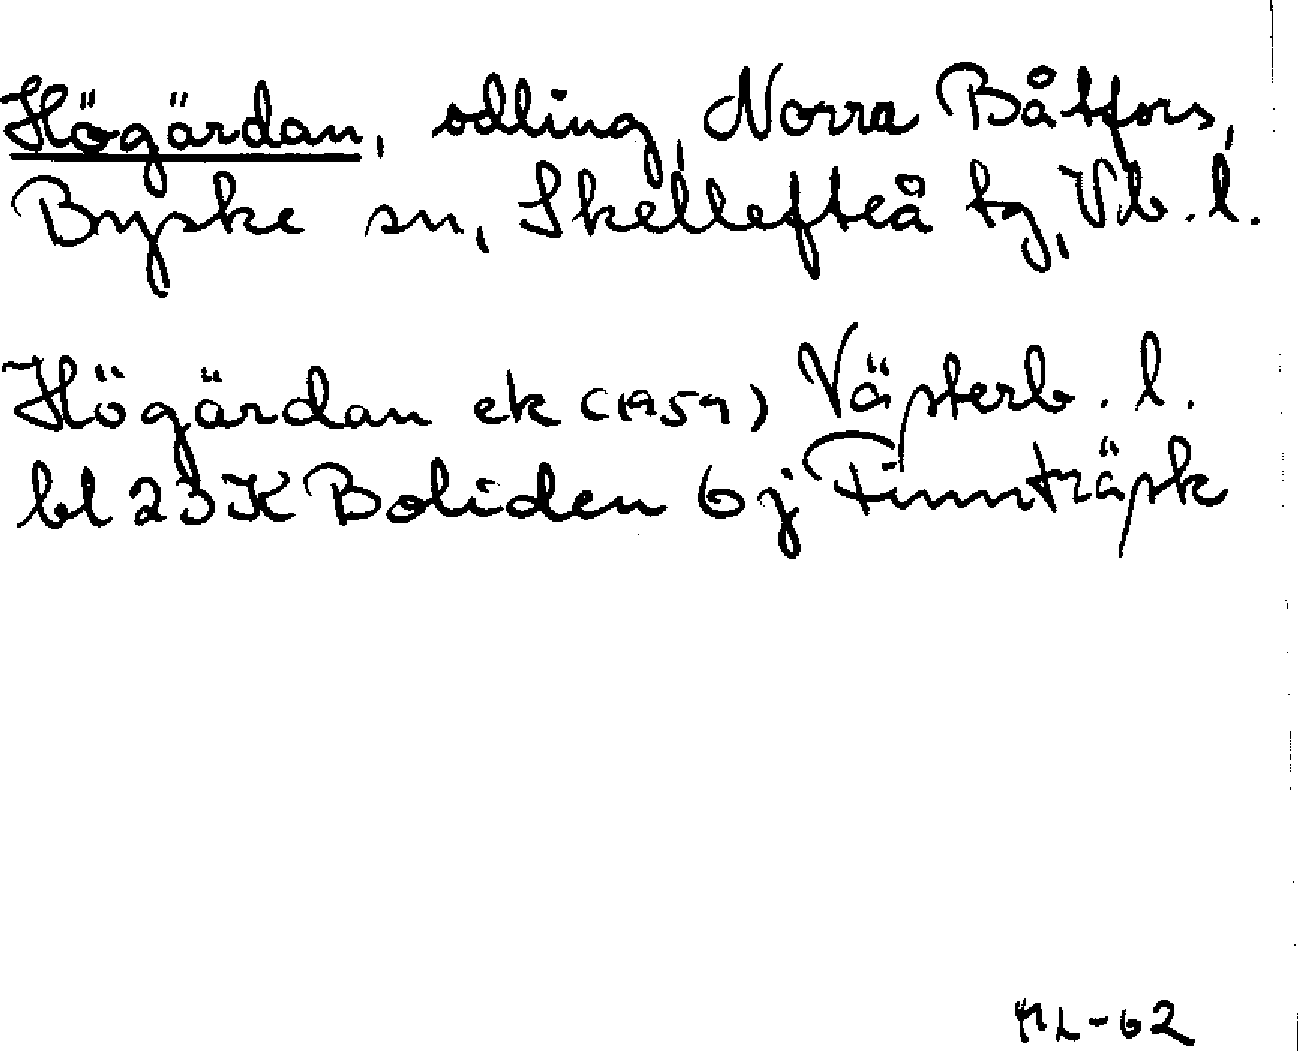 Högärdan, odling, Norra Båtfors,
Byske sn, Skellefteå tg, Vb. l.
Högärdan ek (1959) Västerb. l.
bl 23 K Boliden 6 j Finnträsk
ML-62